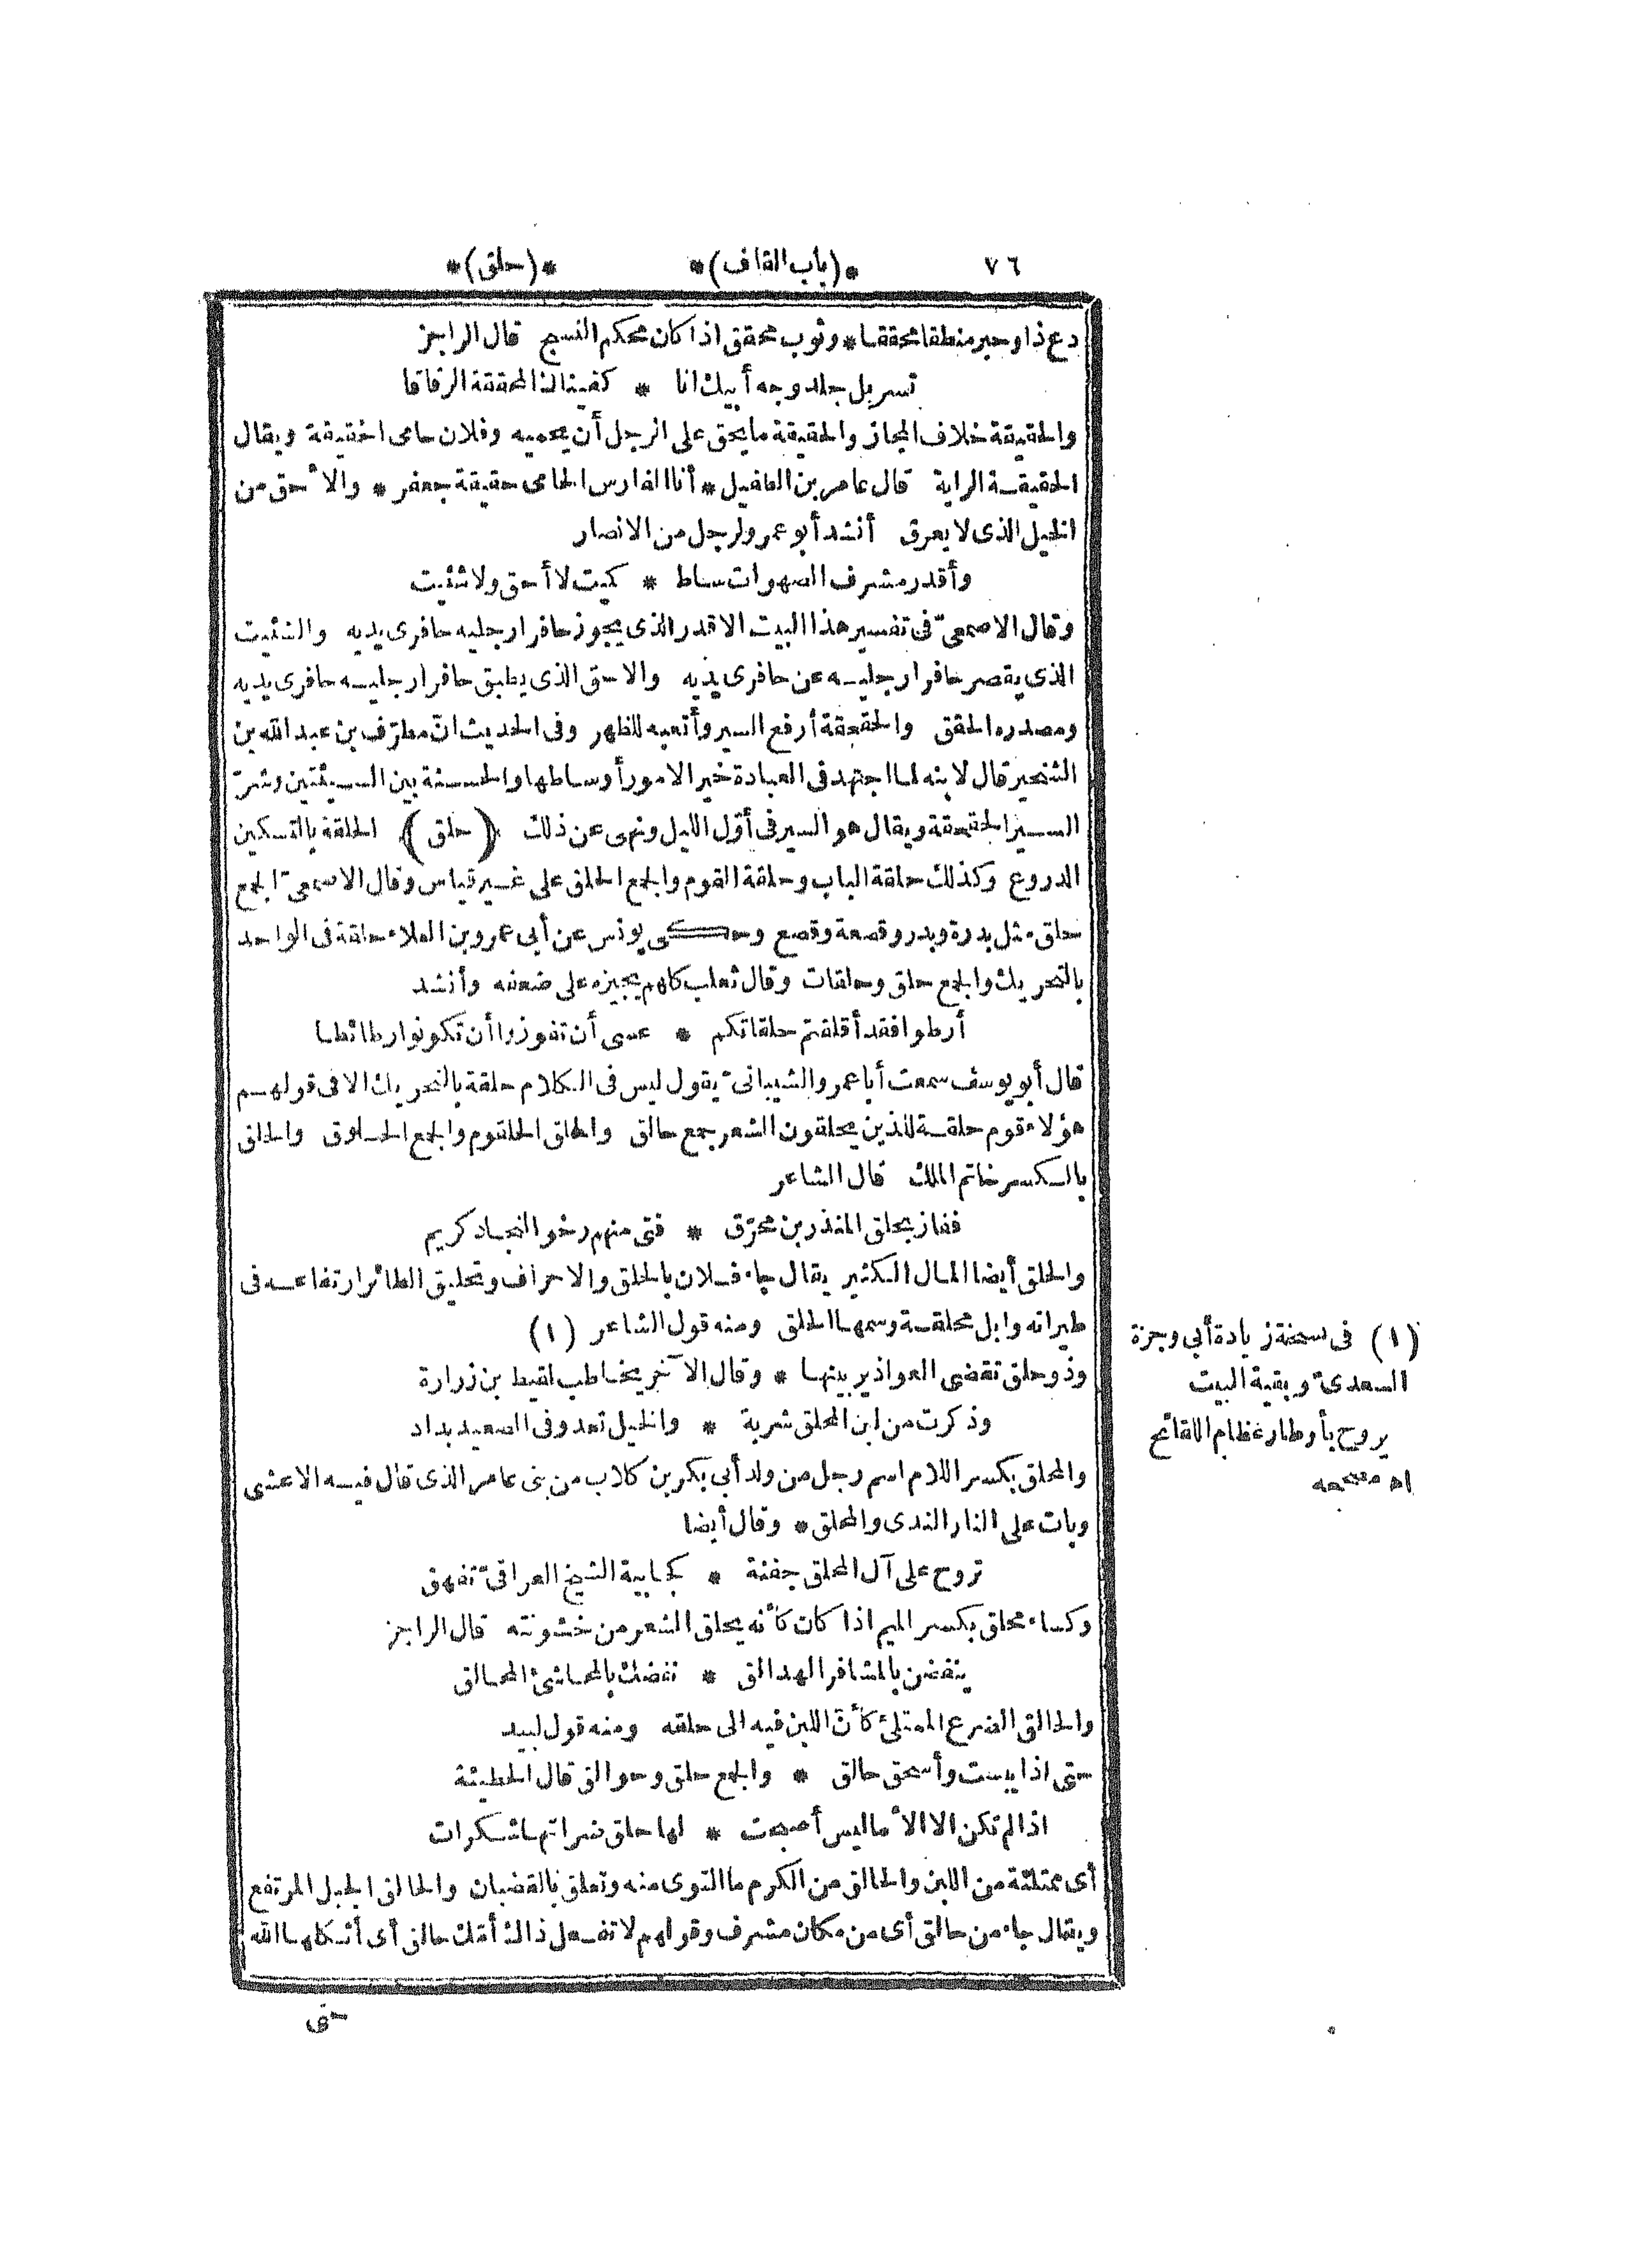 ٧٦ *(باب القاف)* *(حلق)*
دع ذا وحبر منطقا محققا * وثوب محقق اذا كان محكم النسج قال الراجز
تسربل جلد وجه أبيك انا * كفيناك المحققة الرقاقا
والحقيقة خلاف المجاز والحقيقة ما يحق على الرجل أن يحميه وفلان حامى الحقيقة ويقال
الحقيقة الراية قال عامر بن الطفيل * أنا الفارس الحامى حقيقة جعفر * والأحق من
الخيل الذى لا يعرق أنشد أبو عمرو لرجل من الانصار
وأقدر مشرف الصهوات ساط * كميت لا أحق ولا شئيت
وقال الاصمعىّ فى تفسير هذا البيت الاقدر الذى يجوز حافرا رجليه حافرى يديه والشئيت
الذى يقصر حافرا رجليه عن حافرى يديه والاحق الذى يطبق حافرا رجليه حافرى يديه
ومصدره الحقق والحقحقة أرفع السير وأتعبه للظهر وفى الحديث انّ مطرّف بن عبد الله بن
الشخير قال لابنه لما اجتهد فى العبادة خير الامور أوساطها والحسنة بين السيئتين وشرّ
السير الحقحقة ويقال هو السير فى أوّل الليل ونهى عن ذلك (حلق) الحلقة بالتسكين
الدروع وكذلك حلقة الباب وحلقة القوم والجمع الحلق على غير قياس وقال الاصمعىّ الجمع
حلق مثل بدرة وبدر وقصعة وقصع وحكى يونس عن أبى عمرو بن العلاء حلقة فى الواحد
بالتحريك والجمع حلق وحلقات وقال ثعلب كلهم يجيزه على ضعفه وأنشد
أرطوا فقد أقلقتم حلقاتكم * عسى أن تفوزوا أن تكونوا رطائطا
قال أبو يوسف سمعت أبا عمرو الشيبانىّ يقول ليس فى الكلام حلقة بالتحريك الا فى قولهم
هؤلاء قوم حلقة للذين يحلقون الشعر جمع حالق والحلق الحلقوم والجمع الحلوق والحلق
بالكسر خاتم الملك قال الشاعر
ففاز بحلق المنذر بن محرّق * فتى منهم رخو النجاد كريم
والحلق أيضا المال الكثير يقال جاء فلان بالحلق والاحراف وتحليق الطائر ارتفاعه فى
طيرانه وابل محلقة وسمها الحلق ومنه قول الشاعر (١)
وذو حلق تقضى العواذير بينها * وقال الآخر يخاطب لقيط بن زرارة
وذكرت من لبن المحلق شربة * والخيل تعدو فى الصعيد بداد
والمحلق بكسر اللام اسم رجل من ولد أبى بكر بن كلاب من بنى عامر الذى قال فيه الاعشى
وبات على النار الندى والمحلق * وقال أيضا
تروح على آل المحلق جفنة * كجابية الشيخ العراقىّ تفهق
وكساء محلق بكسر الميم اذا كان كأنه يحلق الشعر من خشونته قال الراجز
ينفضن بالمشافر الهدالق * نفضك بالمحاشئ المحالق
والحالق الضرع الممتلئ كأنّ اللبن فيه الى حلقه ومنه قول لبيد
حتى اذا يبست وأسحق حالق * والجمع حلق وحوالق قال الحطيئة
اذا لم تكن الا الأماليس أصبحت * لها حلق ضراتها شكرات
أى ممتلئة من اللبن والحالق من الكرم ما التوى منه وتعلق بالقضبان والحالق الجبل المرتفع
ويقال جاء من حالق أى من مكان مشرف وقولهم لا تفعل ذاك أمّك حالق أى أثكلها الله
حتى
(١) فى نسخة زيادة أبى وجزة
السعدىّ وبقية البيت
يروح بأوطار عظام اللقائح
اه مصححه